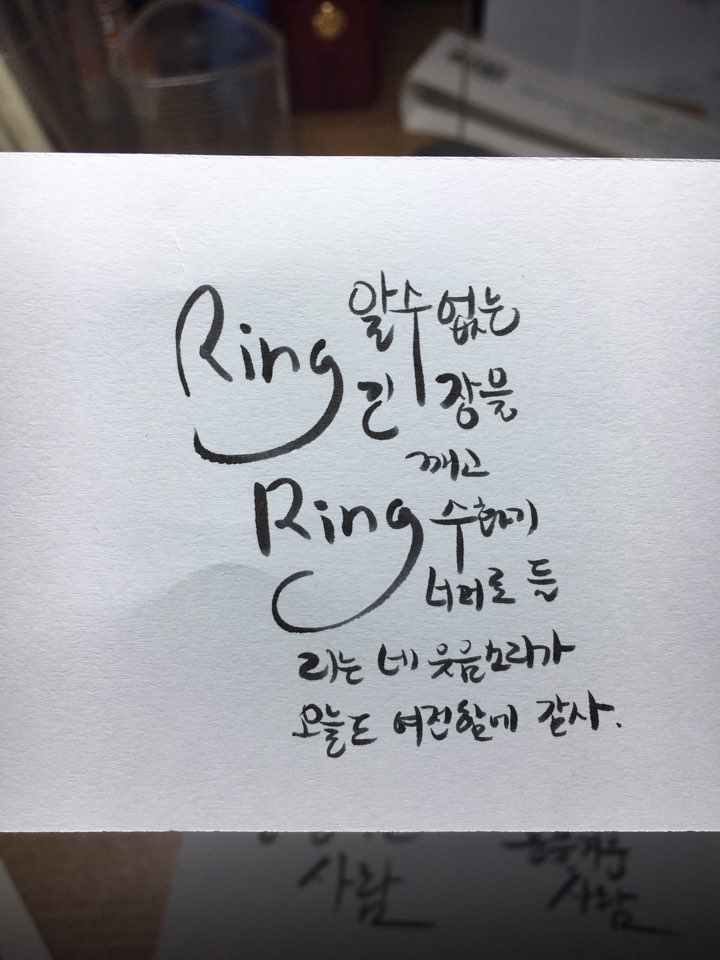 Ring 알수없는
긴 장을
깨고
Ring 수화기
너머로 들
리는 네 웃음소리가
오늘도 여전함에 감사.
사람
사람